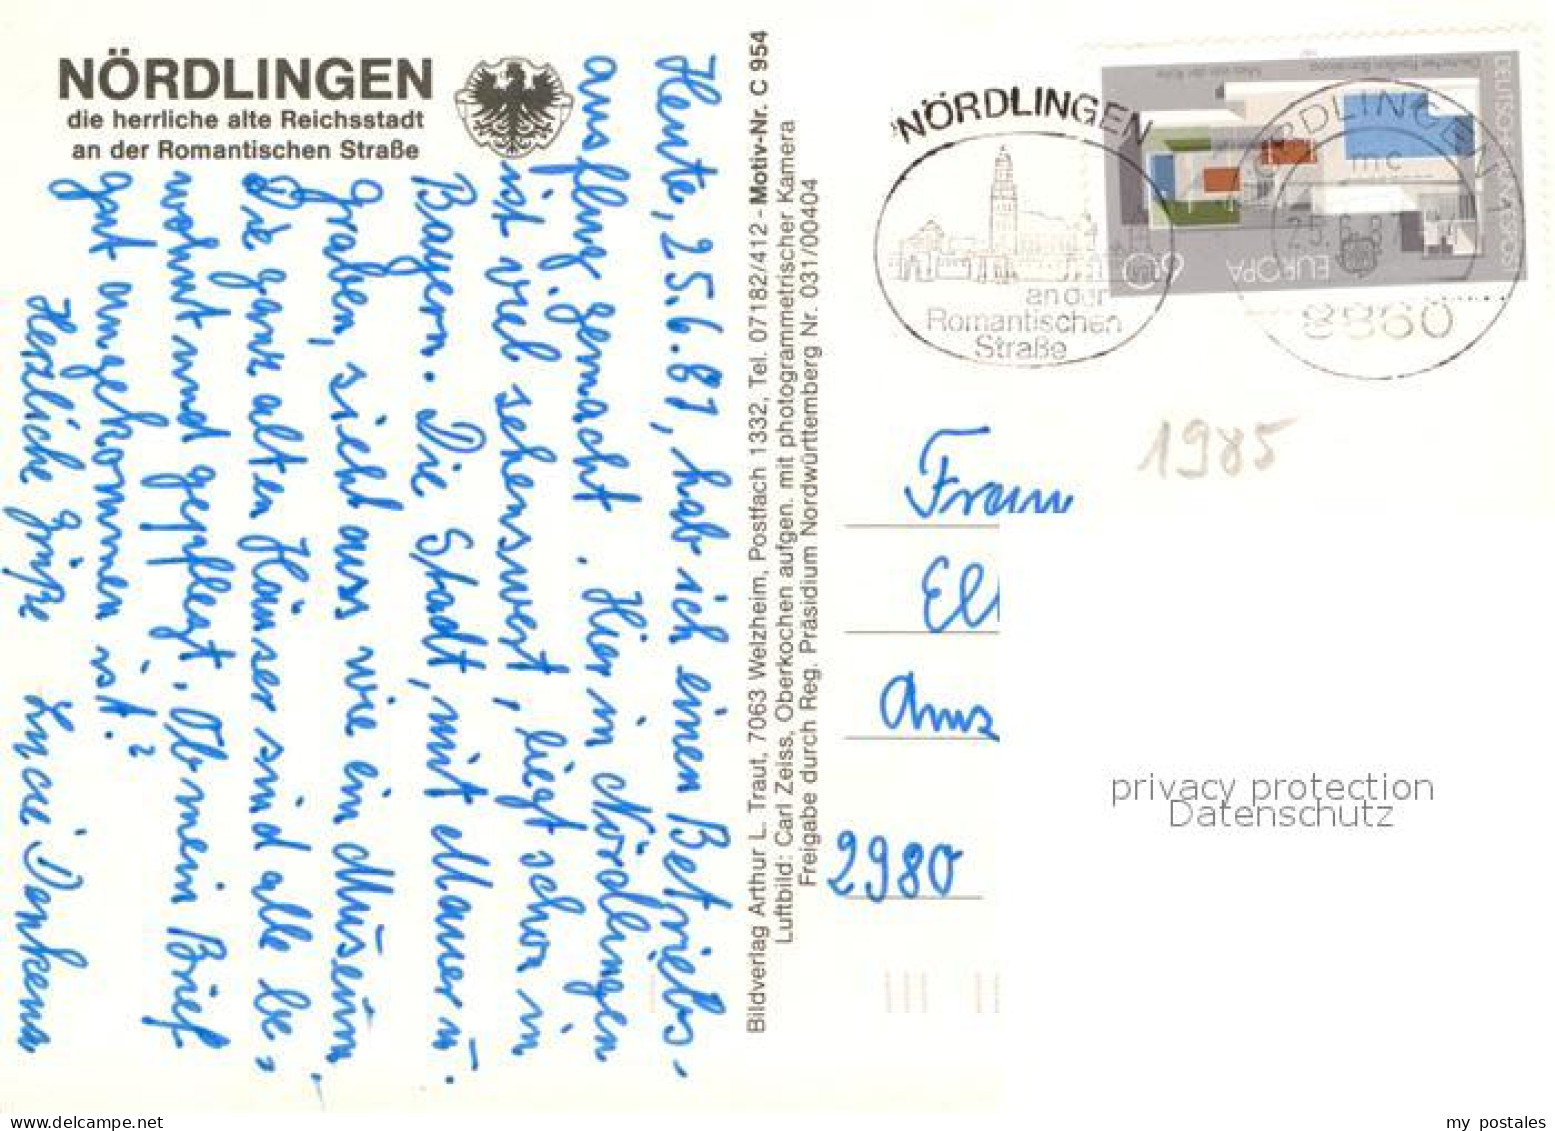 NÖRDLINGEN
die herrliche alte Reichsstadt
an der Romantischen Straße
Heute, 25.6.87, hab ich einen Betriebs-
ausflug gemacht. Hier in Nördlingen
ist viel sehenswert, liegt schon in
Bayern. Die Stadt, mit Mauer u.
Graben, sieht aus wie ein Museum.
Die ganz alten Häuser sind alle be-
wohnt und gepflegt. Ob mein Brief
gut angekommen ist?
Herzliche Grüße Luci Denkena
Bildverlag Arthur L. Traut, 7063 Welzheim, Postfach 1332, Tel. 07182/412 - Motiv-Nr. C 954
Luftbild: Carl Zeiss, Oberkochen aufgen. mit photogrammetrischer Kamera
Freigabe durch Reg. Präsidium Nordwürttemberg Nr. 031/00404
NÖRDLINGEN
an der
Romantischen
Straße
NÖRDLINGEN 1
mc
25.6.87
8860
DEUTSCHE BUNDESPOST
Deutscher Pavillon Barcelona
Mies van der Rohe
EUROPA
60
1985
Frau
Ell
Ams
2980
privacy protection
Datenschutz
my postales